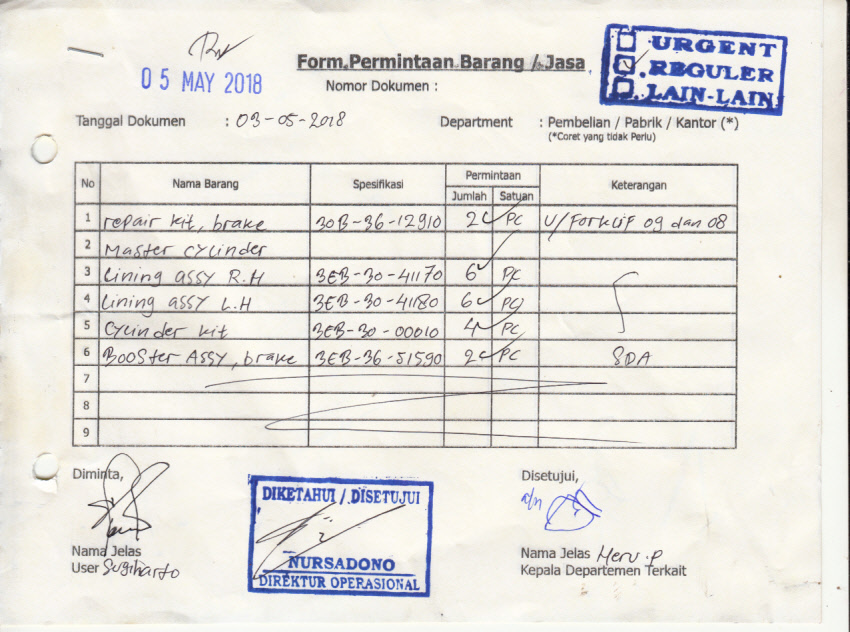 05 MAY 2018
Form Permintaan Barang / Jasa
URGENT
REGULER
LAIN-LAIN
Nomor Dokumen :
Tanggal Dokumen : 03-05-2018
Department : Pembelian / Pabrik / Kantor (*)
(*Coret yang tidak Perlu)
No Nama Barang Spesifikasi Permintaan Keterangan
Jumlah Satuan
1 repair kit, brake 30B-36-12910 2 PC U/Forklif 09 dan 08
2 Master cylinder
3 Lining assy R.H 3EB-30-41170 6 PC
4 Lining assy L.H 3EB-30-41180 6 PC
5 Cylinder kit 3EB-30-00010 4 PC
6 Booster Assy, brake 3EB-36-51590 2 PC SDA
7
8
9
Diminta,
Disetujui,
a/n
DIKETAHUI / DISETUJUI
NURSADONO
DIREKTUR OPERASIONAL
Nama Jelas
User Sugiharto
Nama Jelas Heru.P
Kepala Departemen Terkait